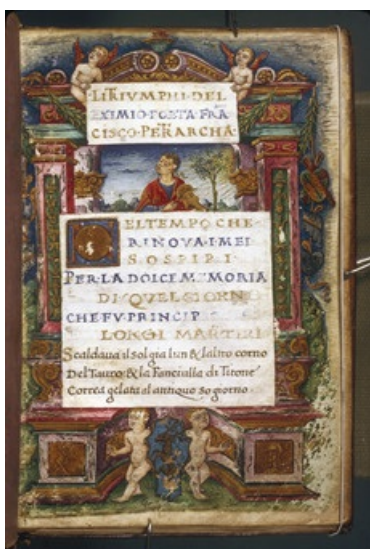 ·LI TRIVMPHI·DEL
EXIMIO·POETA·FRA
CISCO·PETRARCHA·
NEL TEMPO CHE
RINOVA·I·MEI
SOSPIRI
PER·LA DOLCE MEMORIA
DI·QVEL GIORNO
CHE FV·PRINCIP
LONGI MARTIRI
Scaldaua il sol gia lun & laltro corno
Del Tauro & la Fanciulla di Titone
Correa gelata al antiquo sogiorno